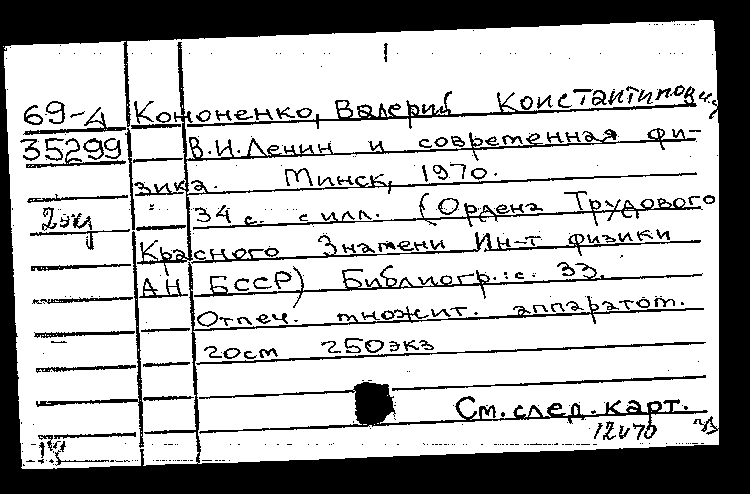 69-4 Кононенко, Валерий Константинович
35299 В.И.Ленин и современная фи-
зика. Минск, 1970.
2экз 34 с. с илл. (Ордена Трудового
Красного Знамени Ин-т физики
АН БССР) Библиогр.: с. 33.
Отпеч. множит. аппаратом.
20см 250экз
См. след. карт.
12 V 70